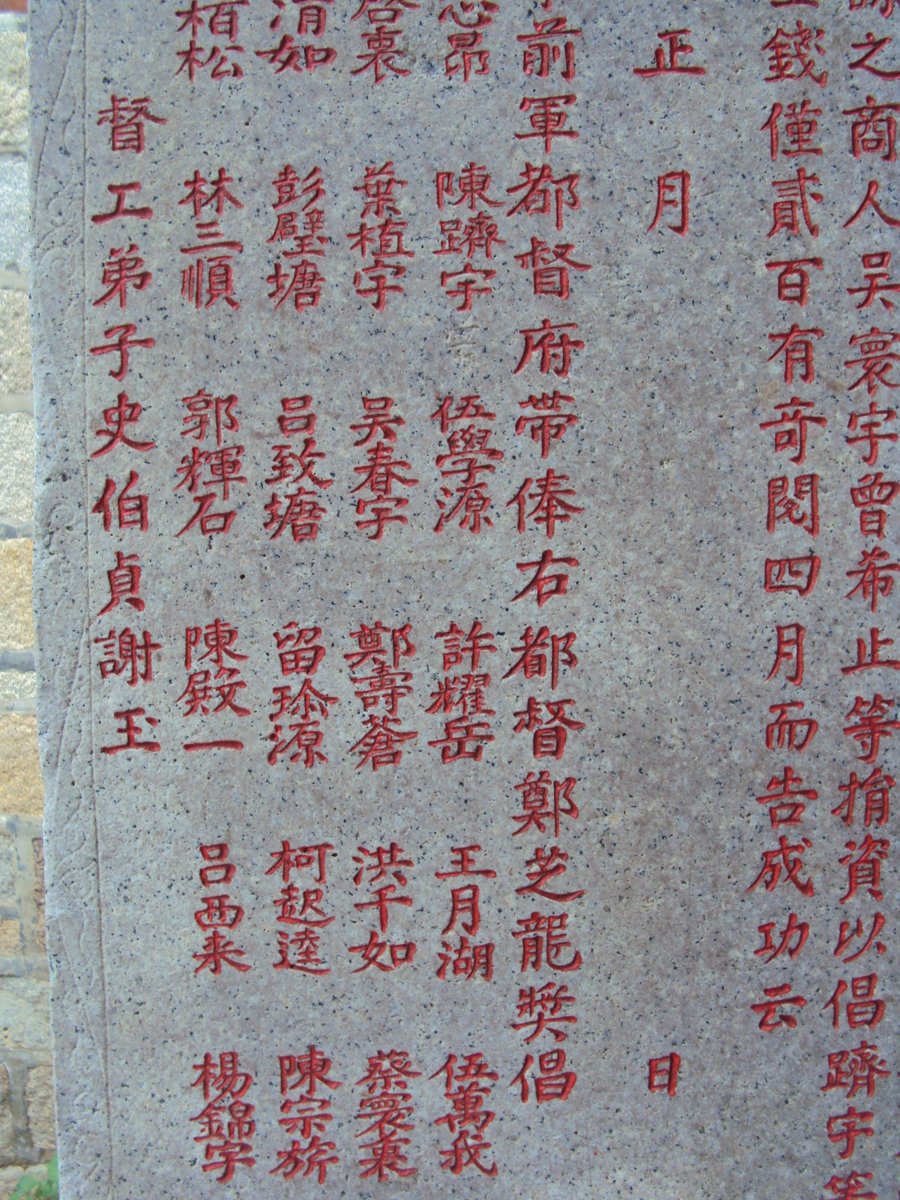 之商人吴寰宇曾希止等捐資以倡躋宇等
錢僅貳百有奇閱四月而告成功云
正月 日
前軍都督府帶俸右都督鄭芝龍奬倡
昂 陳躋宇 伍學源 許耀岳 王月湖 伍萬我
啓衷 葉植宇 吴春宇 鄭壽蒼 洪千如 蔡寰襄
清如 彭璧塘 吕致塘 留珍源 柯起逵 陳宗旂
栢松 林三順 郭輝石 陳殿一 吕西来 楊錦宇
督工弟子史伯貞謝玉